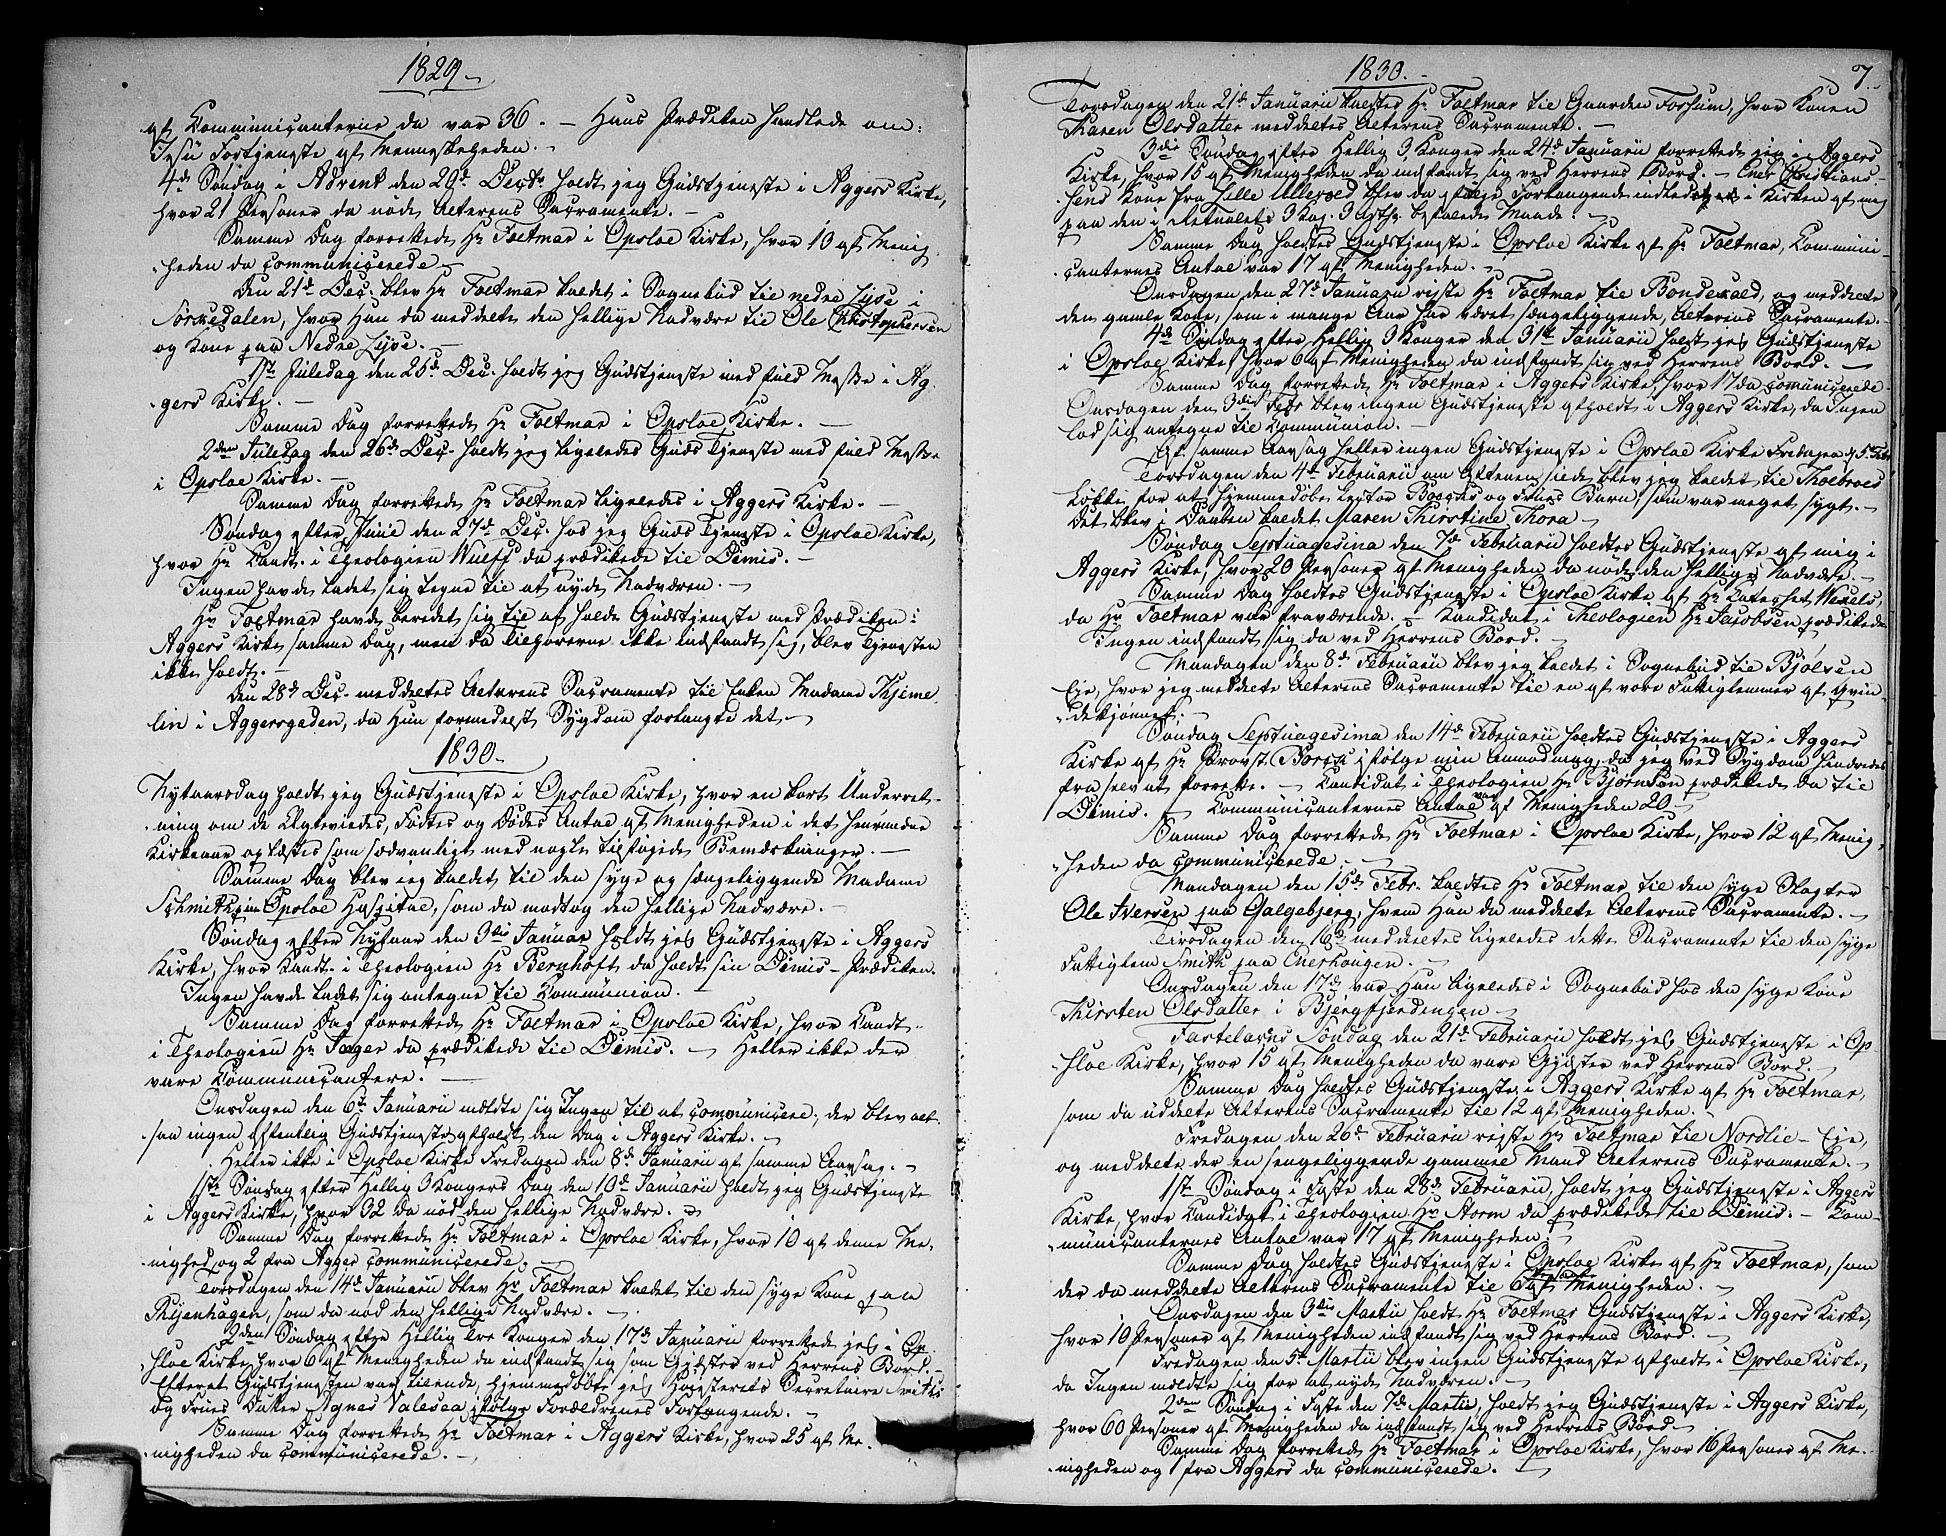 1829.
af Communicanterne da var 36. — Hans Prædiken handlede om:
Jesu Fortjeneste af Menneskeheden. —
4de Søndag i Advent den 20de Decbr. holdt jeg Gudstjeneste i Aggers Kirke,
hvor 21 Personer da nøde Alterens Sacramente. —
Samme Dag forrettede Hr Foltmar i Opsloe Kirke, hvor 10 af Menig-
heden da communicerede. —
Den 21de Dec. blev Hr Foltmar kaldet i Sognebud til nedre Lyse i
Sørkedalen, hvor Han da meddelte den hellige Nadvere til Ole Christophersen
og Kone paa Nedre Lyse. —
1ste Juledag den 25de Dec. holdt jeg Gudstjeneste med fuld Messe i Ag-
gers Kirke. —
Samme Dag forrettede Hr Foltmar i Opsloe Kirke. —
2den Juledag den 26de Dec. holdt jeg ligeledes Guds Tjeneste med fuld Messe
i Opsloe Kirke. —
Samme Dag forrettede Hr Foltmar ligeledes i Aggers Kirke. —
Søndag efter Juul den 27de Dec. hos jeg Guds Tjeneste i Opsloe Kirke,
hvor Hr Candt. i Theologien Wulff da prædikede til Dimis. —
Ingen havde ladet sig tegne til at nyde Nadveren. —
Hr Foltmar havde beredet sig til at holde Gudstjeneste med Prædiken i
Aggers Kirke samme Dag, men da Tilhørerne ikke indfandt sig, blev Tjenesten
ikke holdt. —
Den 28de Dec. meddeltes Alterens Sacramente til Enken Madame Thime-
lin i Aggersgaden, da Hun formedelst Sygdom forlangte det. —
1830.
Nytaarsdag holdt jeg Gudstjeneste i Opsloe Kirke, hvor en kort Underret-
ning om de Ægteviedes, Fødtes og Dødes Antal af Menigheden i det henrundne
Kirkeaar oplæstes som sædvanligt med nogle tilføiede Bemærkninger. —
Samme Dag blev jeg kaldet til den syge og sængeliggende Madame
Schmith paa Opsloe Hospital, som da modtog den hellige Nadvere. —
Søndag efter Nytaar den 3die Januar holdt jeg Gudstjeneste i Aggers
Kirke, hvor Kandt. i Theologien Hr Bernhoft da holdt sin Dimis-Prædiken.
Ingen havde ladet sig antegne til Communion. —
Samme Dag forrettede Hr Foltmar i Opsloe Kirke, hvor Candt.
i Theologien Hr Jæger da prædikede til Dimis. — Heller ikke der
vare Communicantere. —
Onsdagen den 6te Januarii meldte sig Ingen til at communicere; der blev alt-
saa ingen offentlig Gudstjeneste afholdt den Dag i Aggers Kirke. —
Heller ikke i Opsloe Kirke Fredagen den 8de Januarii af samme Aarsag. —
1ste Søndag efter Hellig 3 Kongers Dag den 10de Januarii holdt jeg Gudstjeneste
i Aggers Kirke, hvor 32 da nød den hellige Nadvere. —
Samme Dag forrettede Hr Foltmar i Opsloe Kirke, hvor 10 af denne Me-
nighed og 2 fra Agger communicerede. —
Torsdagen den 14de Januarii blev Hr Foltmar kaldet til den syge Kone paa
Thijenhagen, som da nød den hellige Nadvere. —
2den Søndag efter Hellig Tre Konger den 17de Januarii forrettede jeg i Op-
sloe Kirke, hvor 6 af Menigheden da indfandt sig som Gjæster ved Herrens Bord. —
Efterat Gudstjenesten var tilende, hjemmedøbte jeg Secretaire
og Frues Datter Agnes Valesca ifølge Forældrenes Forlangende. —
Samme Dag forrettede Hr Foltmar i Aggers Kirke, hvor 25 af Me-
nigheden da communicerede. —
1830.
7.
Torsdagen den 21de Januarii kaldtes Hr Foltmar til Gaarden Fossum, hvor Konen
Karen Olsdatter meddeltes Alterens Sacramente. —
3die Søndag efter Hellig 3 Konger den 24de Januarii forrettede jeg i Aggers
Kirke, hvor 15 af Menigheden da indfandt sig ved Herrens Bord. — Christian-
sens Kone fra Lille Ullevold blev da ifølge Forlangende indledet i Kirken af mig
paa den i Ritualets 3 Kap. 3 Art. befalede Maade. —
Samme Dag holdtes Gudstjeneste i Opsloe Kirke af Hr Foltmar, Communi-
canternes Antal var 17 af Menigheden. —
Onsdagen den 27de Januarii rejste Hr Foltmar til Bondekald, og meddeelte
den gamle Kone, som i mange Aar har været sængeliggende, Alterens Sacramente. —
4de Søndag efter Hellig 3 Konger den 31te Januarii holdt jeg Gudstjeneste
i Opsloe Kirke, hvor 6 af Menigheden da indfandt sig ved Herrens Bord. —
Samme Dag forrettede Hr Foltmar i Aggers Kirke, hvor 17 da communicerede. —
Onsdagen den 3die Febr blev ingen Gudstjeneste afholdt i Aggers Kirke, da Ingen
lod sig antegne til Communion. —
Af samme Aarsag heller ingen Gudstjeneste i Opsloe Kirke Fredagen d. 5. Febr.
Torsdagen den 4de Februarii om Aftenen silde blev jeg kaldet til Tholbroes
Løkke for at hjemmedøbe Lector og Frues Barn, som var meget sygt. —
Det blev i Daaben kaldet Maren Thirstine Thora —
Søndag Septuagesima den 7de Februarii holdtes Gudstjeneste af mig i
Aggers Kirke, hvor 20 Personer af Menigheden da nøde den hellige Nadvere. —
Samme Dag holdtes Gudstjeneste i Opsloe Kirke af Hr Catechet Wexels,
da Hr Foltmar var fraværende. — Kandidat i Theologien Hr Jacobsen prædikede
Ingen indfandt sig da ved Herrens Bord. —
Mandagen den 8de Februarii blev jeg kaldet i Sognebud til Bjølsen
Eje, hvor jeg meddelte Alterens Sacramente til en af vore Fattiglemmer af Qvin-
dekjønnet. —
Søndag Septuagesima den 14de Februarii holdtes Gudstjeneste i Aggers
Kirke af Hr Provst ifølge min Anmodning, da jeg ved Sygdom hindredes
fra selv at forrette. — Candidat i Theologien Hr Bjørnsen prædikede da til
Dimis. — Communicanternes Antal var af Menigheden 20 —
Samme Dag forrettede Hr Foltmar i Opsloe Kirke, hvor 12 af Menig-
heden da communicerede. —
Mandagen den 15de Febr. kaldtes Hr Foltmar til den syge Slagter
Ole Iversen paa Galgebjerg, hvem Han da meddelte Alterens Sacramente. —
Tirsdagen den 16de meddeeltes ligeledes dette Sacramente til den syge
Fattiglem Smith paa Enerhougen. —
Onsdagen den 17de var Han ligeledes i Sognebud hos den syge Kone
Thirsten Olsdatter i Bjergfjerdingen —
Fastelavns Søndag den 21de Februarii holdt jeg Gudstjeneste i Op-
sloe Kirke, hvor 15 af Menigheden da vare Gjæster ved Herrens Bord. —
Samme Dag holdtes Gudstjeneste i Aggers Kirke af Hr Foltmar,
som da uddelte Alterens Sacramente til 12 af Menigheden. —
Fredagen den 26de Februarii rejste Hr Foltmar til Nordlie-Eje,
og meddelte der en sengeliggende gammel Mand Alterens Sacramente. —
1ste Søndag i Faste den 28de Februarii, holdt jeg Gudstjeneste i Aggers
Kirke, hvor Candidat i Theologien Hr Storm da prædikede til Dimis. — Com-
municanternes Antal var 17 af Menigheden. —
Samme Dag holdtes Gudstjeneste i Opsloe Kirke af Hr Foltmar, som
der da meddelte Alterens Sacramente til 6 af Menigheden. —
Onsdagen den 3die Martii holdt Hr Foltmar Gudstjeneste i Aggers Kirke,
hvor 10 Personer af Menigheden indfandt sig ved Herrens Bord. —
Fredagen den 5te Martii blev ingen Gudstjeneste afholdt i Opsloe Kirke,
da Ingen meldte sig for at nyde Nadveren. —
2den Søndag i Faste den 7de Martii, holdt jeg Gudstjeneste i Aggers Kirke,
hvor 60 Personer af Menigheden da indfandt sig ved Herrens Bord —
Samme Dag forrettede Hr Foltmar i Opsloe Kirke, hvor 16 Personer af Me-
nigheden og 1 fra Aggers da communicerede. —